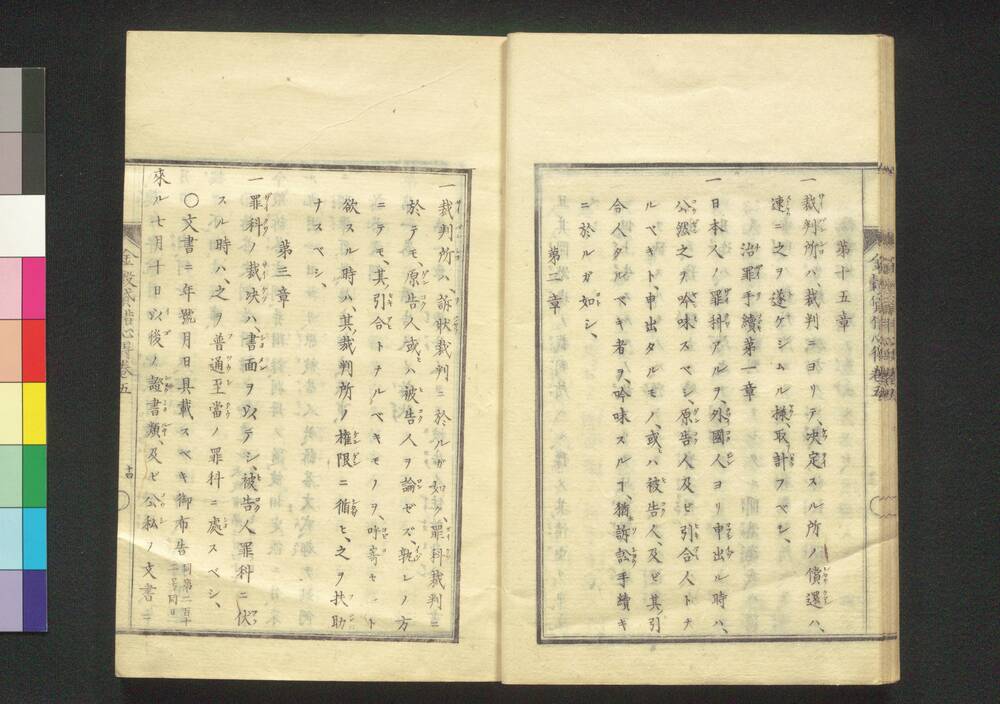 第十五章
一 裁判所ハ裁判ニヨリテ、决定スル所ノ償還ハ、
速ニ之ヲ遂ケシムル樣、取計フベシ、
治罪手續第一章
一 日本人ハ罪科アルヲ、外國人ヨリ申出ル時ハ、
公然之ヲ吟味スベシ、原告人及ビ引合人トナ
ルベキト、申出タルモノ、或ハ被告人、及ビ其引
合人タルベキ者ヲ、吟味スルヿ、猶訴訟手續キ
ニ於ルガ如シ、
第二章
一 裁判所ハ、訴状裁判ニ於ルガ如ク、罪科裁判ニ
於テモ、原告人或ハ被告人ヲ論ゼズ、孰レノ方
ニテモ、其引合トナルベキモノヲ、呼寄セント
欲スル時ハ、其裁判所ノ權限ニ循ヒ、之ヲ扶助
ナスベシ、
第三章
一 罪科ノ裁决ハ、書面ヲ以テシ、被告人罪科ニ伏
スル時ハ、之ヲ普通至當ノ罪科ニ處スベシ、
〇文書ニ年號月日具載スベキ御布告
來ル七月十日以後ノ證書類、及ビ公私ノ文書ニ
金穀貸借心得卷五
十四